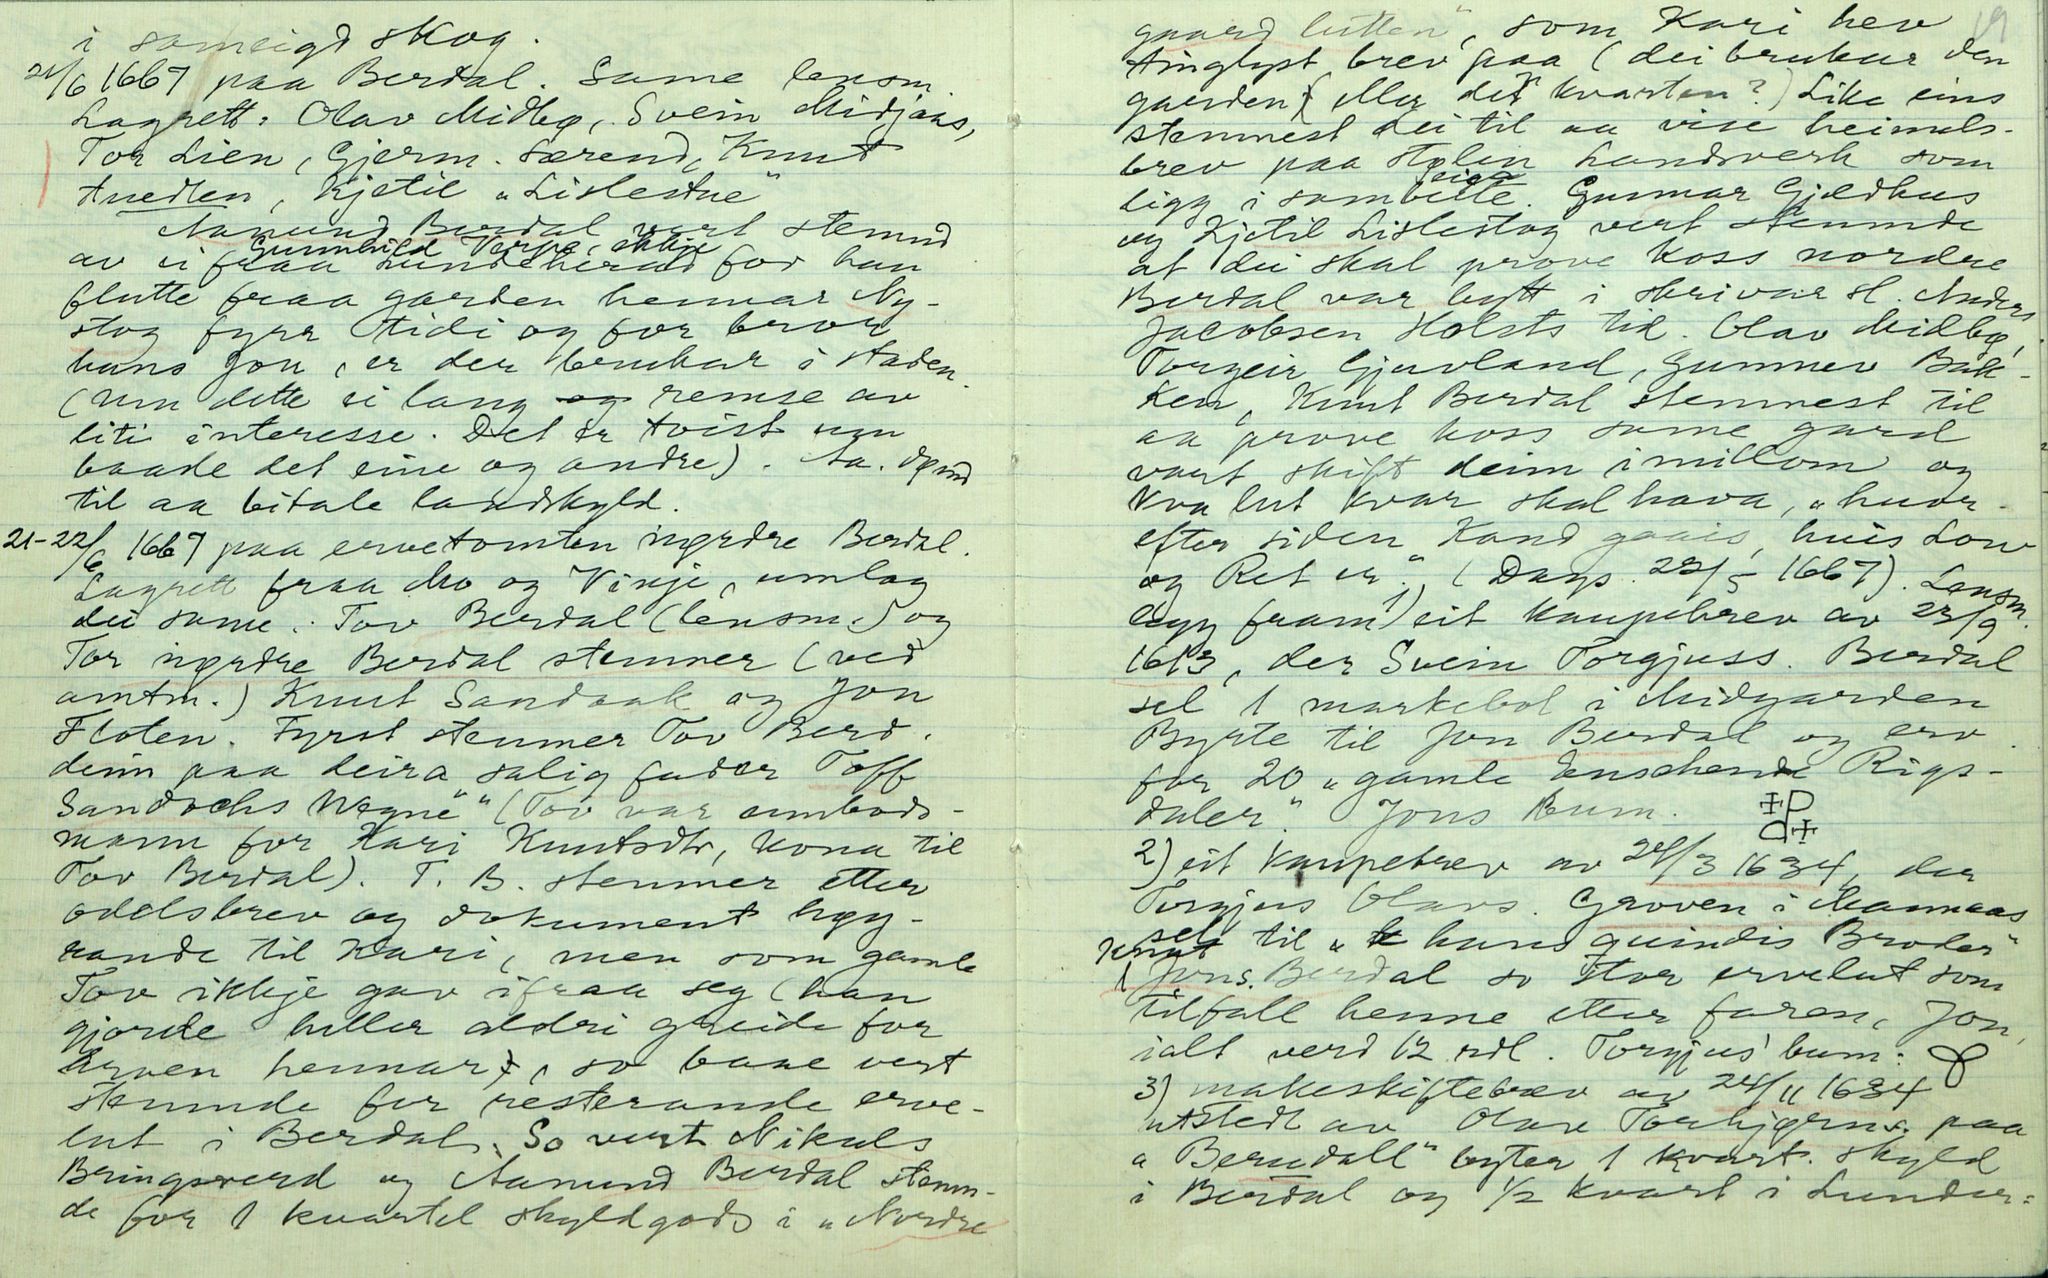 i sameigd skog.
21/6 1667 paa Berdal. Same lensm.
Lagrett: Olav Midbø, Svein Midjaas,
Tor Lien, Gjerm. Særend, Knut
Anedlen, Kjetil „Lislestue"
Aamund Berdal vart stemnd
Gunnhild Verpe, ekkje
av ei fraa Lundeherad for han
flutte fraa garden hennar Ny-
stog fyrr tidi og for bror
hans Jon, er der brukar i staden.
(um dette ei lang remse av
liti interesse. Det er tvist um
baade det eine og andre). Aa. dømd
til aa bitale landskyld.
21-22/6 1667 paa ervetomten nørdre Berdal.
Lagrett fraa Mo og Vinje, umlag
dei same. Tov Berdal (lensm.) og
Tor nørdre Berdal stemner (ved
amtm.) Knut Sandvak og Jon
Floten. Fyrst stemner Tov Berd.
deim paa deira salig fader Toff
Sandochs Wegne" (Tov var umbods-
mann for Kari Knutsdtr, kona til
Tov Berdal). T. B. stemner etter
oddelsbrev og dokument høy-
rande til Kari, men som gamle
Tov ikkje gav ifraa seg (han
gjorde heller aldri greide for
arven hennar), so bae vert
stemnde for resterande erve-
lut i Berdal. So vert Nikuls
Bringsverd og Aamund Berdal stemn-
de for 1 kvartel skyldgods i „Nordre
19
gaard lutten", som Kari hev
tinglyst brev paa (dei brukar den
garden eller det kvarten?) Like eins
stemnest dei til aa vise heimels-
brev paa Stølin Landsverk som
ligg i sambeite. Gunnar Gjeldhus
og Kjetil Lislestog vert stemnde
at dei skal prove koss nordre
Berdal var bytt i skrivar sl. Anders
Jacobsen Holsts tid. Olav Midbø,
Torgeir Gjuvland, Gunner Bak-
ken, Knut Berdal stemnest til
aa prove koss same gard
vart skift deim imillom og
kva lut kvar skal hava, „huor-
efter siden kand gaais, huis Low
og Ret er". (Dags. 22/5 1667). Lensm.
legg fram 1) eit kaupebrev av 23/9
1613, der Svein Torgjuss. Berdal
sel 1 markebol i Midgarden
Byrte til Jon Berdal og erv.
for 20 „gamle Enschende Rigs-
daler." Jons bum.
2) eit kaupebrev av 24/3 1634, der
Torgjus Olavs. Groven i Mannaas
sel til „hans quindis Broder"
Knut
Jons. Berdal so stor ervelut som
tilfall henne etter faren, Jon,
ialt verd 12 rdl. Torgjus' bum:
3) makeskiftebrev av 24/11 1634
utstedt av Olav Torbjørns. paa
„Berudall" byter 1 kvart. skyld
i Berdal og 1/2 kvart i Lunder=